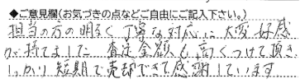 ◆ご意見欄(お気づきの点などご自由にご記入下さい。)
担当の方の明るく丁寧な対応に大変好感
が持てました 査定金額も高くつけて頂き
しっかり短期で売却できて感謝しています